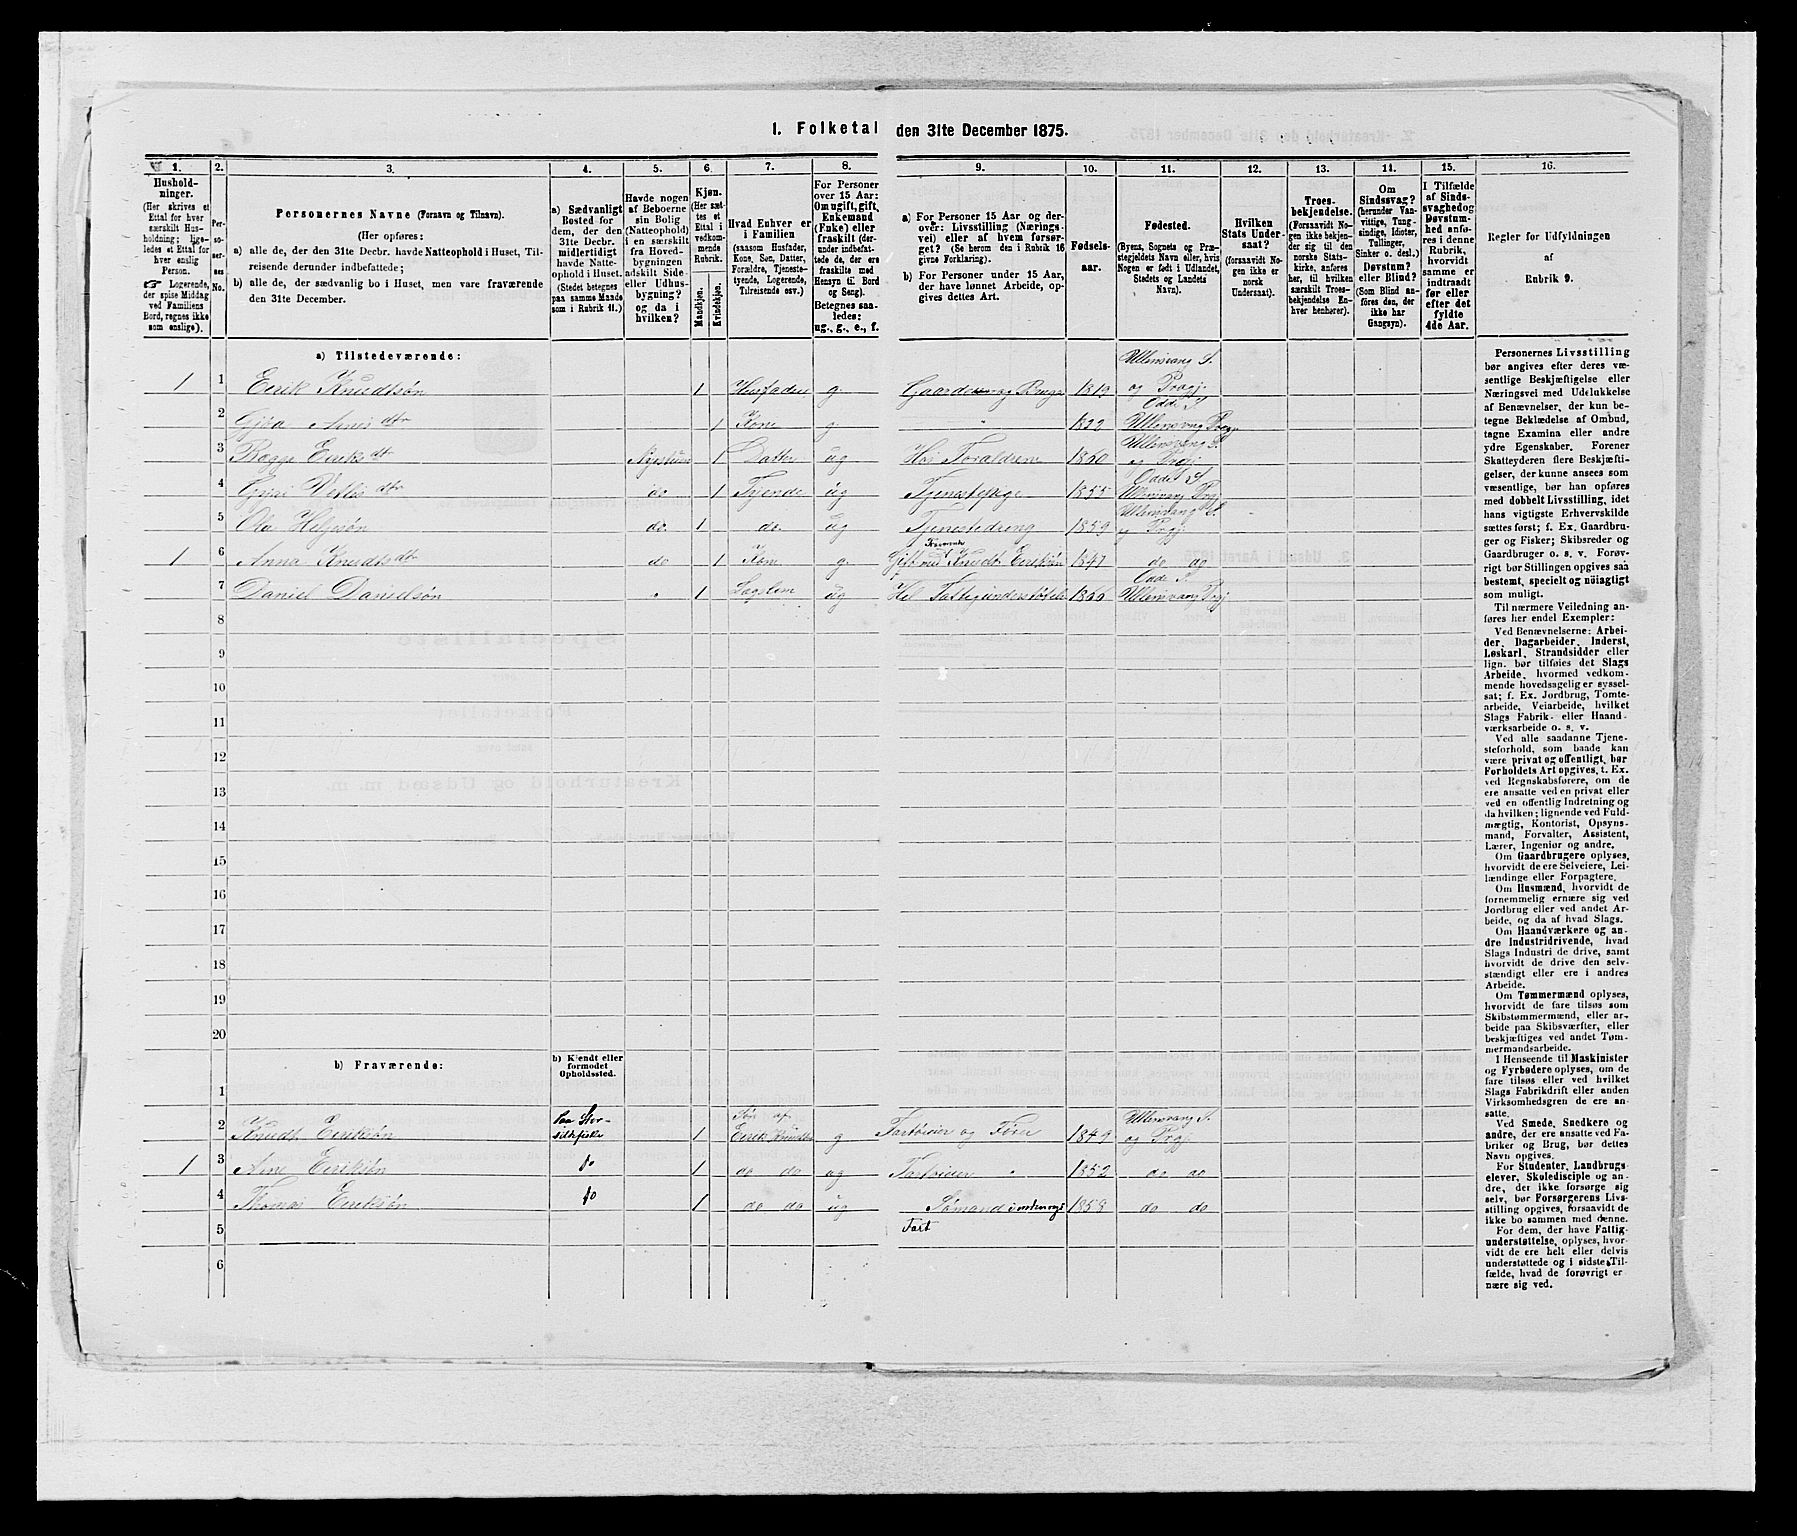 1. Folketal den 31te December 1875.
1. 2. 3. 4. 5. 6. 7. 8. 9. 10. 11. 12. 13. 14. 15. 16.
Hushold-
ninger.
(Her skrives et
Ettal for hver
særskilt Hus-
holdning; lige-
ledes et Ettal for
hver enslig
Person.
☞ Logerende,
der spise Middag
ved Familiens
Bord, regnes ikke
som enslige).
Per-
so-
ner-
nes
No.
Personernes Navne (Fornavn og Tilnavn).
(Her opføres:
a) alle de, der den 31te Decbr. havde Natteophold i Huset, Til-
reisende derunder indbefattede;
b) alle de, der sædvanlig bo i Huset, men vare fraværende
den 31te December.
a) Sædvanligt
Bosted for
dem, der den
31te Decbr.
midlertidigt
havde Natte-
ophold i Huset.
(Stedet betegnes
paa samme Maade
som i Rubrik 11.)
Havde nogen
af Beboerne
sin Bolig
(Natteophold)
i en særskilt
fra Hoved-
bygningen
adskilt Side-
eller Udhus-
bygning?
og da i
hvilken?
Kjøn.
(Her sæt-
tes et
Ettal i
vedkom-
mende
Rubrik.
Mandkjøn.
Kvindekjøn.
Hvad Enhver er
i Familien
(saasom Husfader,
Kone, Søn, Datter,
Forældre, Tjeneste-
tyende, Logerende,
Tilreisende osv.)
For Personer
over 15 Aar:
Om ugift, gift,
Enkemand
(Enke) eller
fraskilt (der-
under indbefat-
tede de, der ere
fraskilte med
Hensyn til Bord
og Seng).
Betegnes saa-
ledes:
ug., g., e., f.
a) For Personer 15 Aar og der-
over: Livsstilling (Nærings-
vei) eller af hvem forsør-
get? (Se herom den i Rubrik 16
givne Forklaring).
b) For Personer under 15 Aar,
der have lønnet Arbeide, op-
gives dettes Art.
Fødsels-
aar.
Fødested.
(Byens, Sognets og Præ-
stegjeldets Navn eller, hvis
Nogen er født i Udlandet,
Stedets og Landets
Navn).
Hvilken
Stats Under-
saat?
(forsaavidt No-
gen ikke er
norsk
Undersaat).
Troes-
bekjendelse.
(Forsaavidt No-
gen ikke bekjen-
der sig til den
norske Stats-
kirke, anføres
her, til hvilken
særskilt Troes-
bekjendelse En-
hver henhører).
Om
Sindssvag?
(herunder Van-
vittige, Tung-
sindige, Idioter,
Tullinger,
Sinker o. desl.)
Døvstum?
eller Blind?
(Som Blind an-
føres den, der
ikke har
Gangsyn).
I Tilfælde
af Sinds-
svaghed og
Døvstum-
hed anfø-
res i denne
Rubrik,
hvorvidt
samme er
indtraadt
før eller
efter det
fyldte
4de Aar.
Regler for Udfyldningen
af
Rubrik 9.
a) Tilstedeværende:
1 1 Eerik Knudtsøn 1 Husfader g. Gaardeier og Bruger 1819 Ullensvang S. og Prægj.
2 Gjøa Arnesdtr 1 Kone g. " 1822 Odde S. Ullensvang Prægj
3 Bagge Eeriksdtr Nystuen 1 Datter ug Hos Foraldrene 1860 Ullensvang S. og Prgj
4 Guri Detlisdtr do 1 Tyende ug Tjenestepige 1855 Odde S. Ullensvang Prgj
5 Ola Helgesøn do. 1 do. ug Tjenestedreng 1859 Ullensvang S. og Prgj
1 6 Anna Knudtsdtr do 1 Kone g. Gift med Knudt Eeriksøn 1847 do do
7 Daniel Danielsøn " 1 Lægslem ug Hel Fattigunderstøtelse 1800 Odde S. Ullensvang Prgj
8
9
10
11
12
13
14
15
16
17
18
19
20
b) Fraværende:
b) Kjendt eller
formodet
Opholdssted.
1
2 Knudt Eeriksøn Paa Stor-
sildfiske 1 Søn af Eerik Knudtsøn g Fartøieier og Fører 1849 Ullensvang S. og Prgj
1 3 Arne Eeriksøn do 1 do do ug Fartøieier " 1852 do do
4 Thomas Eeriksøn do 1 do do ug Sømand i indenrigs 1858 do do
5 Fart
6
Personernes Livsstilling
bør angives efter deres væ-
sentlige Beskjæftigelse eller
Næringsvei med Udelukkelse
af Benævnelser, der kun be-
tegne Beklædelse af Ombud,
tagne Examina eller andre
ydre Egenskaber. Forener
Skatteyderen flere Beskjæfti-
gelser, der kunne ansees som
væsentlige, bør han opføres
med dobbelt Livsstilling, idet
hans vigtigste Erhvervskilde
sættes først; f. Ex. Gaardbru-
ger og Fisker; Skibsreder og
Gaardbruger o. s. v. Forøv-
rigt bør Stillingen opgives saa
bestemt, specielt og nøiagtigt
som muligt.
Til nærmere Veiledning an-
føres her endel Exempler:
Ved Benævnelserne: Arbei-
der, Dagarbeider, Inderst,
Løskarl, Strandsidder eller
lign. bør tilføies det Slags
Arbeide, hvormed vedkom-
mende hovedsagelig er syssel-
sat; f. Ex. Jordbrug, Tomte-
arbeide, Veiarbeide, hvilket
Slags Fabrik- eller Haand-
værksarbeide o. s. v.
Ved alle saadanne Tjene-
steforhold, som baade kan
være privat og offentligt, bør
Forholdets Art opgives, t. Ex.
ved Regnskabsførere, om de
ere ansatte ved en privat eller
ved en offentlig Indretning og
da hvilken; lignende ved Fuld-
mægtig, Kontorist, Opsyns-
mand, Forvalter, Assistent,
Lærer, Ingeniør og andre.
Om Gaardbrugere oplyses,
hvorvidt de ere Selveiere, Lei-
lændinge eller Forpagtere.
Om Husmænd, hvorvidt de
fornemmelig ernære sig ved
Jordbrug eller ved andet Ar-
beide, og da af hvad Slags.
Om Haandværkere og an-
dre Industridrivende, hvad
Slags Industri de drive, samt
hvorvidt de drive den selv-
stændigt eller ere i andres
Arbeide.
Om Tømmermænd oplyses,
hvorvidt de fare tilsøs som
Skibstømmermænd, eller ar-
beide paa Skibsværfter, eller
beskjæftiges ved andet Tøm-
mermandsarbeide.
I Henseende til Maskinister
og Fyrbødere oplyses, om de
fare tilsøs eller ved hvilket
Slags Fabrikdrift eller anden
Virksomhedsgren de ere an-
satte.
Ved Smede, Snedkere og
andre, der ere ansatte ved Fa-
briker og Brug, bør dettes
Navn opgives.
For Studenter, Landbrugs-
elever, Skoledisciple og an-
dre, der ikke forsørge sig
selv, bør Forsørgerens Livs-
stilling opgives, forsaavidt de
ikke bo sammen med denne.
For dem, der have Fattig-
understøttelse, oplyses, hvor-
vidt de ere helt eller delvis
understøttede og i sidste Til-
fælde, hvad de forøvrigt er-
nære sig ved.